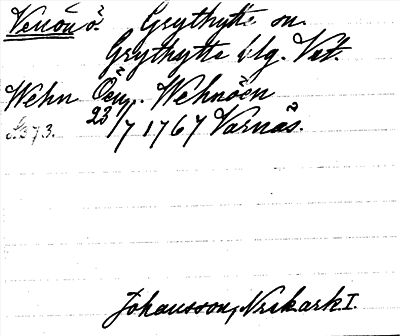 Venön ö. Grythytte sn.
Grythytte blg. Vstm.
Wehn Öen, Wehnöen
23/7 1767 Varnäs.
S. 373.
Johansson, Nrikark I.